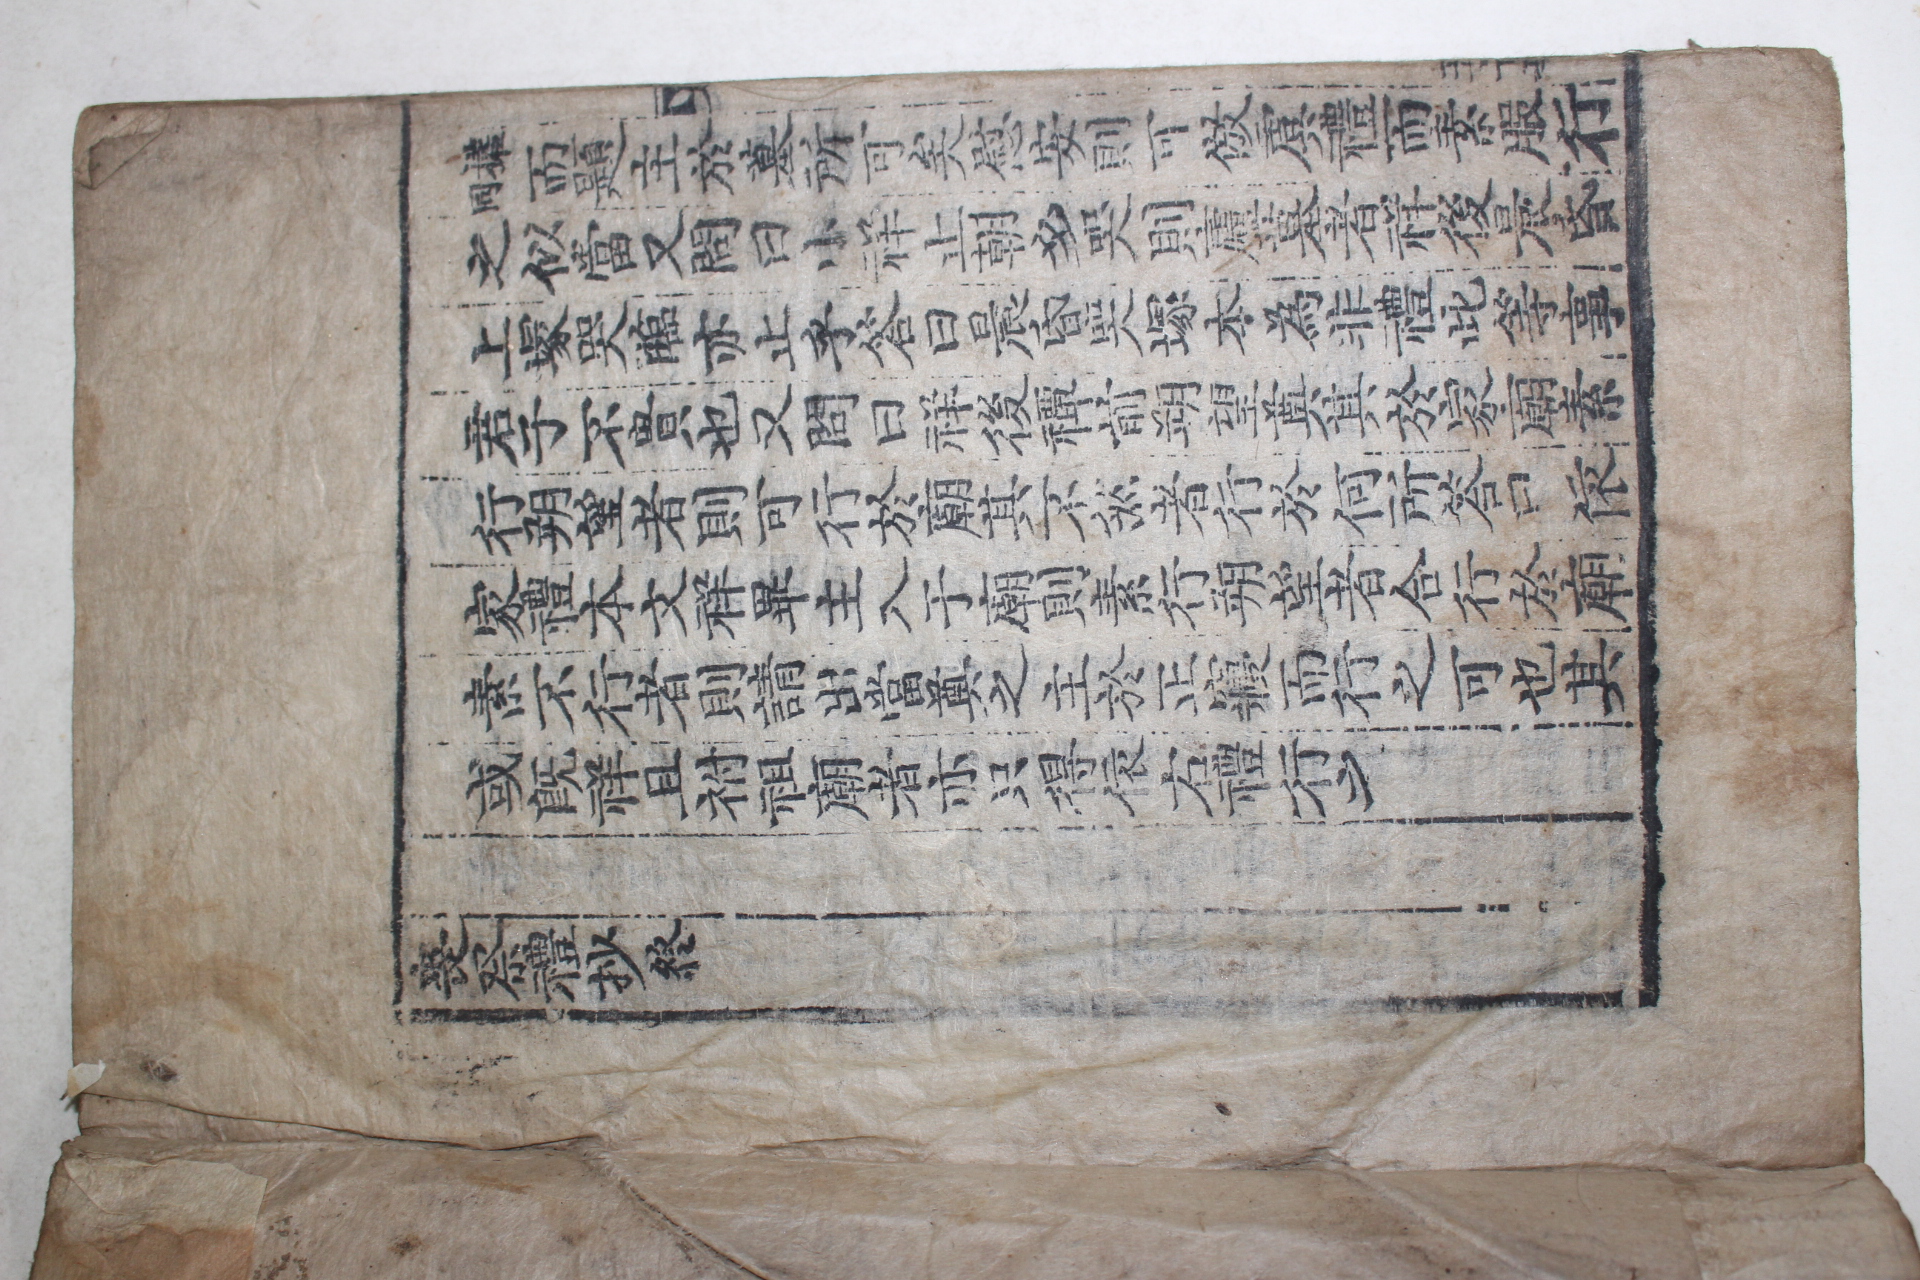 同而題主於墓所可矣慰安則可倣虞禮而素服行
之似當又問曰小祥止朝夕哭則廬墓者祥後晨昏
上塚哭臨亦止乎答曰晨昏哭塚本為非禮此等事
君子不貴也又問曰祥後禫前朔望奠其於家廟素
行朔望者則可行於廟其不然者行於何所答曰依
家禮本文祥畢主入于廟則素行朔望者合行於廟
素不行者則請出當奠之主於正寢而行之可也其
或旣祥且祔祖廟者亦只得依右禮行之
喪祭禮抄終